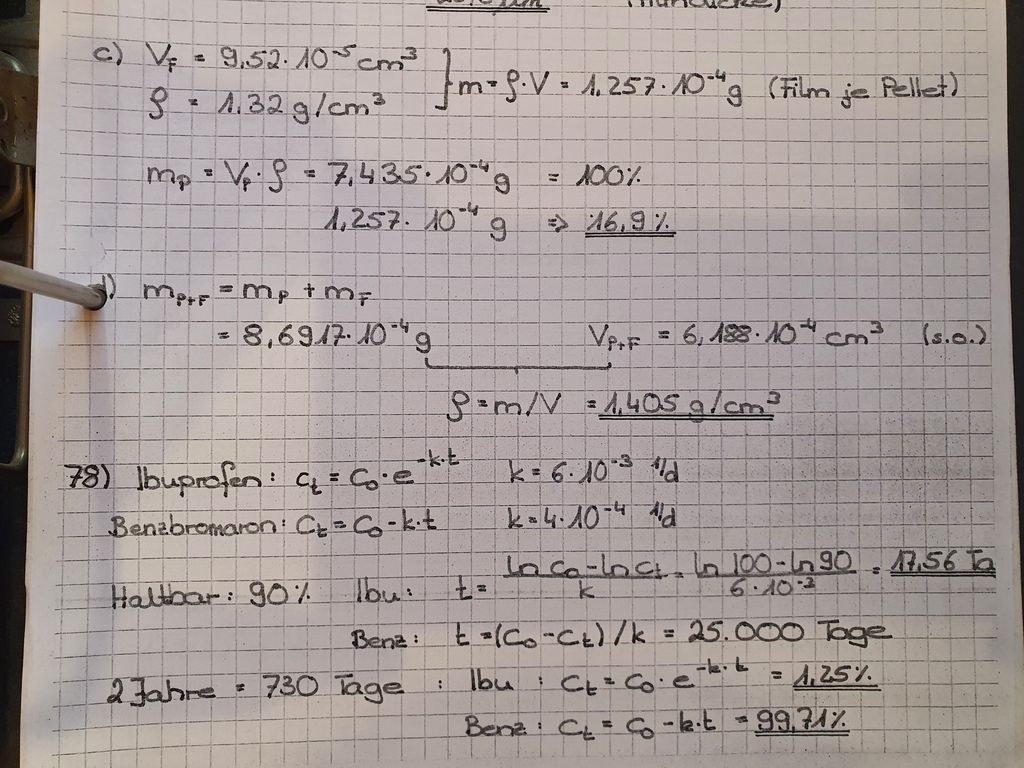 c) V_F = 9,52·10⁻⁵ cm³
ρ = 1,32 g/cm³ } m = ρ·V = 1,257·10⁻⁴ g (Film je Pellet)
m_P = V_P·ρ = 7,435·10⁻⁴ g = 100%
1,257·10⁻⁴ g ⇒ 16,9%
d) m_P+F = m_P + m_F
= 8,6917·10⁻⁴ g V_P+F = 6,188·10⁻⁴ cm³ (s.o.)
ρ = m/V = 1,405 g/cm³
78) Ibuprofen: c_t = c₀·e^-k·t k = 6·10⁻³ 1/d
Benzbromaron: c_t = c₀ - k·t k = 4·10⁻⁴ 1/d
Haltbar: 90% Ibu: t = (ln c₀ - ln c_t)/k = (ln 100 - ln 90)/(6·10⁻³) = 17,56 Ta
Benz: t = (c₀ - c_t)/k = 25.000 Tage
2 Jahre = 730 Tage : Ibu : c_t = c₀·e^-k·t = 1,25%
Benz : c_t = c₀ - k·t = 99,71%